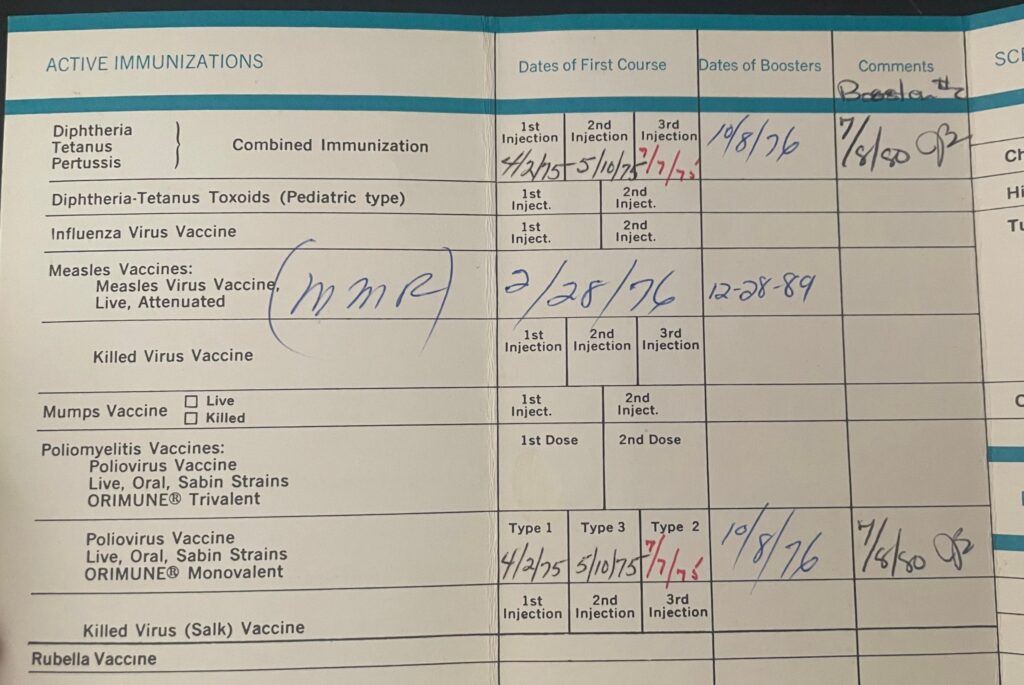 ACTIVE IMMUNIZATIONS
Dates of First Course
Dates of Boosters
Comments
#2
Diphtheria
Tetanus
Pertussis
Combined Immunization
1st Injection
2nd Injection
3rd Injection
4/2/75
5/10/75
7/7/75
10/8/76
7/8/80
Diphtheria-Tetanus Toxoids (Pediatric type)
1st Inject.
2nd Inject.
Influenza Virus Vaccine
1st Inject.
2nd Inject.
Measles Vaccines:
Measles Virus Vaccine,
Live, Attenuated
(MMR)
2/28/76
12-28-89
Killed Virus Vaccine
1st Injection
2nd Injection
3rd Injection
Mumps Vaccine
Live
Killed
1st Inject.
2nd Inject.
Poliomyelitis Vaccines:
Poliovirus Vaccine
Live, Oral, Sabin Strains
ORIMUNE® Trivalent
1st Dose
2nd Dose
Poliovirus Vaccine
Live, Oral, Sabin Strains
ORIMUNE® Monovalent
Type 1
Type 3
Type 2
4/2/75
5/10/75
7/7/75
10/8/76
7/8/80
Killed Virus (Salk) Vaccine
1st Injection
2nd Injection
3rd Injection
Rubella Vaccine